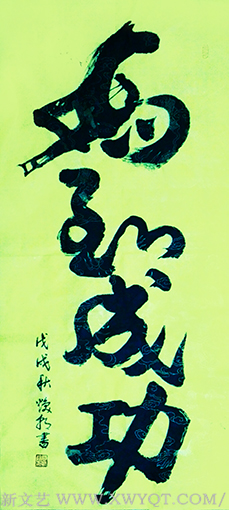 马到成功
戊戌秋書
新文艺 WWW.XWYQT.COM/